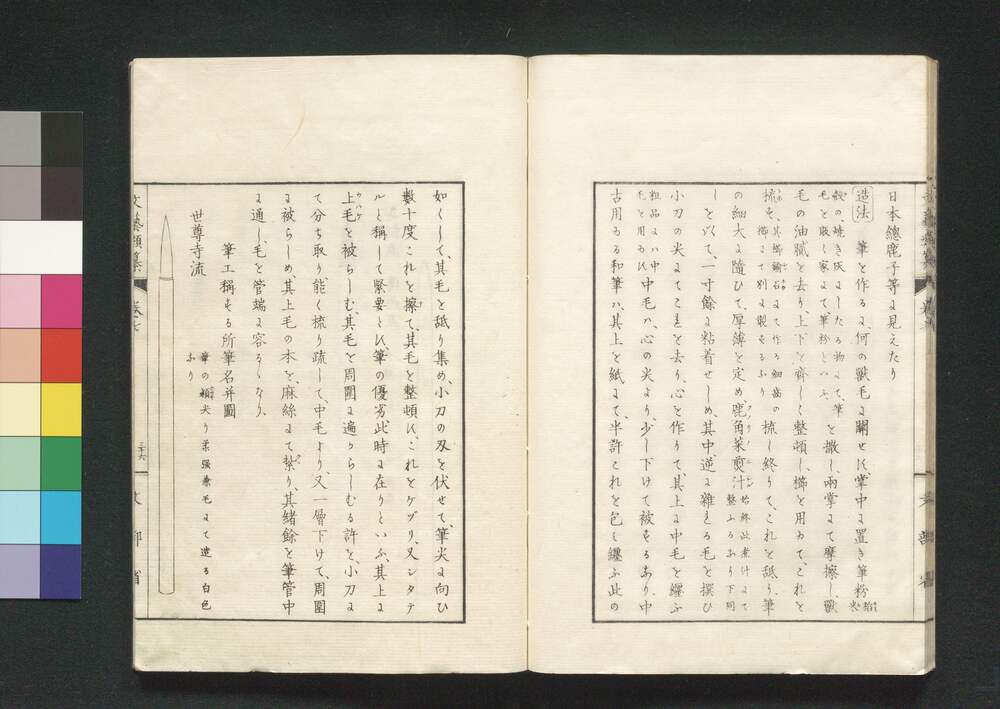 日本總鹿子等に見えたり
造法 筆と作るに、何の獸毛に關せず、掌中に置き筆粉
穀の、燒き灰にしたる物にて、筆
毛と販く家にて、筆粉といふ、と撒し、兩掌にて摩擦し、獸
毛の油膩を去り、上下と齊しく整頓し、櫛と用ゐて、これと
梳き、其櫛鍮石にて作る細齒の
櫛にて別に製するなり梳し終りて、これと舐り、筆
の細大に隨ひて、厚薄を定め、鹿角菜煎汁
始終此煮汁にて
整ふるなり下同
しとゞて、一寸餘に粘着せしめ、其中、逆に雜れる毛と撰ひ
小刀の尖にてこれと去り、心と作りて、其上に中毛と纒ふ
粗品にハ中
毛と用ゐず中毛ハ、心の尖より、少し下けて被するあり、中
古用ゐる和筆ハ、其上と紙にて、半許これを包み纒ふ此の
如くして、其毛と舐り集め、小刀の刄を伏せて、筆尖に向ひ
數十度これを擦て、其毛を整頓す、これとケヅリ、又シタテ
ルと稱して緊要とす、筆の優劣此時に在りといふ、其上に
上毛と被らしむ、其毛と周圍に遍からしむる許と、小刀に
て分ち取り、能く梳り疏して、中毛より、又一層下けて、周圍
に被らしめ、其上毛の本と、麻絲にて紮り、其緒餘と筆管中
に通し、毛と管端に容るゝなり、
筆工稱する所筆名并圖
世尊寺流
筆の頴尖り柔强兼毛にて造る白色
なり
文藝類纂
卷七
三十六
文部省